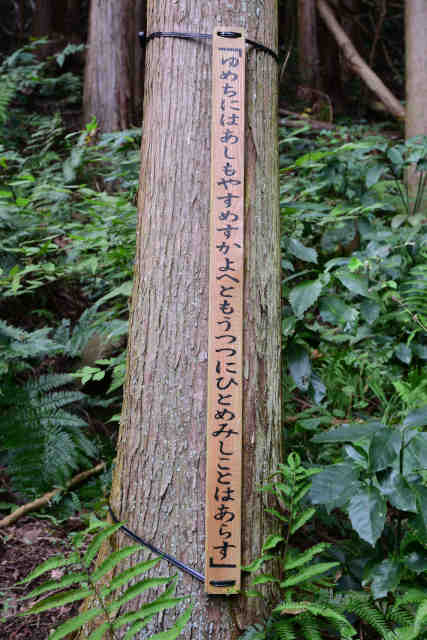 『ゆめちにはあしもやすめすかよへともうつつにひとめみしことはあらす』